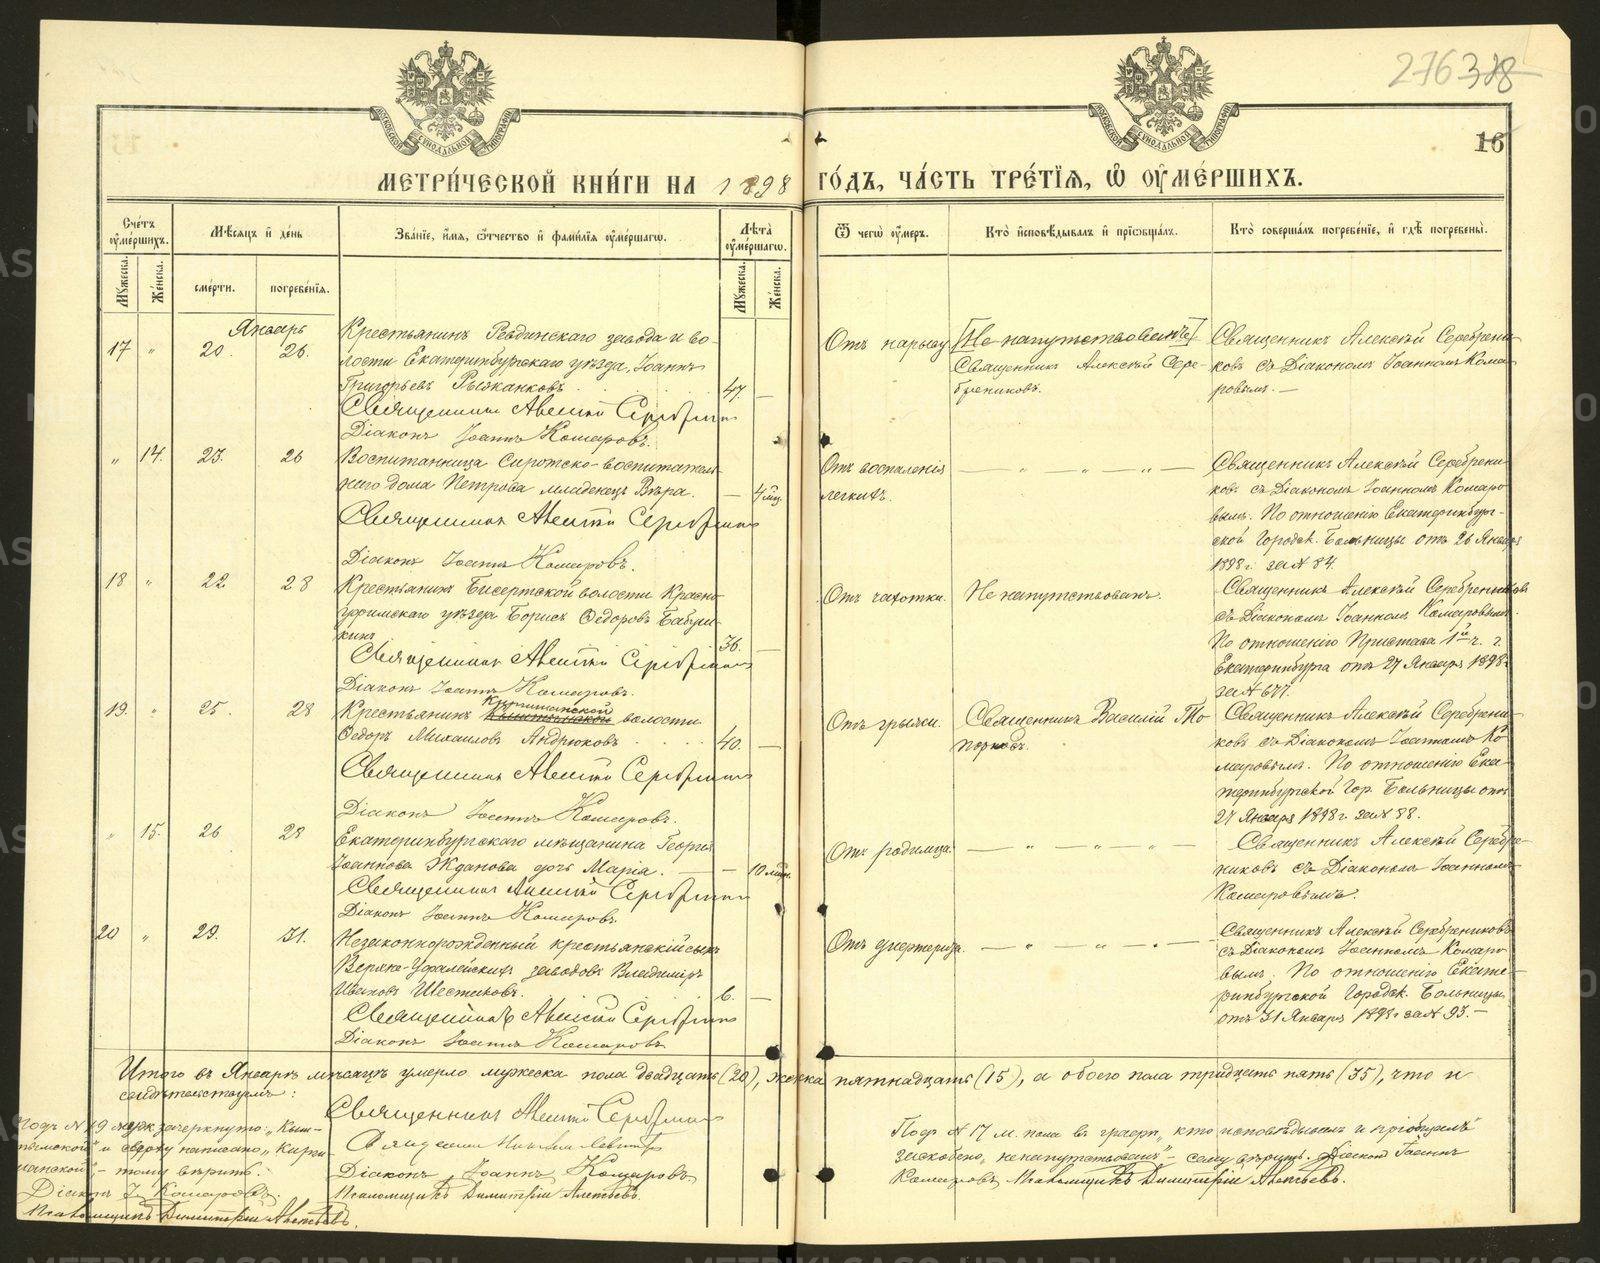 276 318
16
МОСКОВСКОЙ СѴНОДАЛЬНОЙ ТИПОГРАФІИ
МОСКОВСКОЙ СѴНОДАЛЬНОЙ ТИПОГРАФІИ
МЕТРИ́ЧЕСКОЙ КНИ́ГИ НА 1898 ГО́ДЪ, ЧА́СТЬ ТРЕ́ТІѦ, Ѡ҆ ОУ҆МЕ́РШИХЪ.
Сче́тъ оу҆ме́ршихъ.
Мѣ́сѧцъ и҆ де́нь
Зва́нїе, и҆́мѧ, ѻ҆́тчество и҆ фами́лїѧ оу҆ме́ршагѡ.
Лѣ́та оу҆ме́ршагѡ.
Ѿ чегѡ̀ оу҆́меръ.
Кто̀ и҆сповѣ́дывалъ и҆ прїѻбща́лъ.
Кто̀ соверша́лъ погребе́нїе, и҆ гдѣ̀ погребены̀.
Мꙋ́жеска.
Же́нска.
сме́рти.
погребе́нїѧ.
Мꙋ́жеска.
Же́нска.
Январь
17 " 20. 26.
Крестьянинъ Ревдинскаго завода и во-
лости Екатеринбургскаго уѣзда, Іоаннъ
Григорьевъ Рызканковъ 47. —
Священникъ Алексѣй Серебрениковъ
Діаконъ Іоаннъ Комаровъ.
Отъ нарыву
[Не напутствованъ]
Священникъ Алексѣй Сере-
брениковъ.
Священникъ Алексѣй Серебрени-
ковъ съ Діакономъ Іоанномъ Кома-
ровымъ. —
" 14. 23. 26
Воспитанница Сиротско-воспитатель-
наго дома Петрова младенецъ Вѣра. — 4 мѣс.
Священникъ Алексѣй Серебрениковъ
Діаконъ Іоаннъ Комаровъ.
Отъ воспаленія
легкихъ.
— " — " —
Священникъ Алексѣй Серебрени-
ковъ съ Діакономъ Іоанномъ Комаро-
вымъ. По отношенію Екатеринбург-
ской Городск. Больницы отъ 26 Января
1898 г. за № 84.
18 " 22 28
Крестьянинъ Бисертской волости Красно-
уфимскаго уѣзда Борисъ Ѳедоровъ Бабуш-
кинъ 36. —
Священникъ Алексѣй Серебрениковъ
Діаконъ Іоаннъ Комаровъ.
Отъ чахотки.
Не напутствованъ.
Священникъ Алексѣй Серебрениковъ
съ Діакономъ Іоанномъ Комаровымъ.
По отношенію Пристава 1й ч. г.
Екатеринбурга отъ 27 Января 1898 г.
за № 677.
19. " 25. 28
Киргишанской
Крестьянинъ Кыштымской волости
Ѳедоръ Михаиловъ Андрюковъ 40. —
Священникъ Алексѣй Серебрениковъ
Діаконъ Іоаннъ Комаровъ.
Отъ грыжи.
Священникъ Василій То-
порковъ.
Священникъ Алексѣй Серебрени-
ковъ съ Діакономъ Іоанномъ Ко-
маровымъ. По отношенію Ека-
теринбургской Гор. Больницы отъ
27 Января 1898 г. за № 88.
" 15. 26 28
Екатеринбургскаго мѣщанина Георгія
Іоаннова Жданова дочь Марія. — — 10 мѣс.
Священникъ Алексѣй Серебрениковъ
Діаконъ Іоаннъ Комаровъ
Отъ родимца.
— " — " —
Священникъ Алексѣй Серебре-
никовъ съ Діакономъ Іоанномъ
Комаровымъ.
20 " 29. 31.
Незаконнорожденный крестьянскій сынъ
Верхне-Уфалейскихъ заводовъ Владиміръ
Ивановъ Шестаковъ. 6. —
Священникъ Алексѣй Серебрениковъ
Діаконъ Іоаннъ Комаровъ
Отъ дифтерита.
— " — " — " —
Священникъ Алексѣй Серебрениковъ
съ Діакономъ Іоанномъ Комаро-
вымъ. По отношенію Екате-
ринбургской Городск. Больницы
отъ 31 Января 1898 г. за № 93. —
Итого въ Январѣ мѣсяцѣ умерло мужеска пола двадцать (20), женска пятнадцать (15), а обоего пола тридцать пять (35), что и
свидѣтельствуемъ:
Священникъ Алексѣй Серебрениковъ
Діаконъ Іоаннъ Комаровъ
Псаломщикъ Димитрій Алетѣевъ.
Подъ № 19 муж. зачеркнуто: „Кыш-
тымской" и сверху написано „Кирги-
шанской" — тому вѣрить.
Діаконъ І. Комаровъ.
Псаломщикъ Димитрій Алетѣевъ.
Подъ № 17 м. пола въ графѣ „кто исповѣдывалъ и пріобщалъ"
заскоблено „не напутствованъ" — сему вѣрить. Діаконъ Іоаннъ
Комаровъ. Псаломщикъ Димитрій Алетѣевъ.